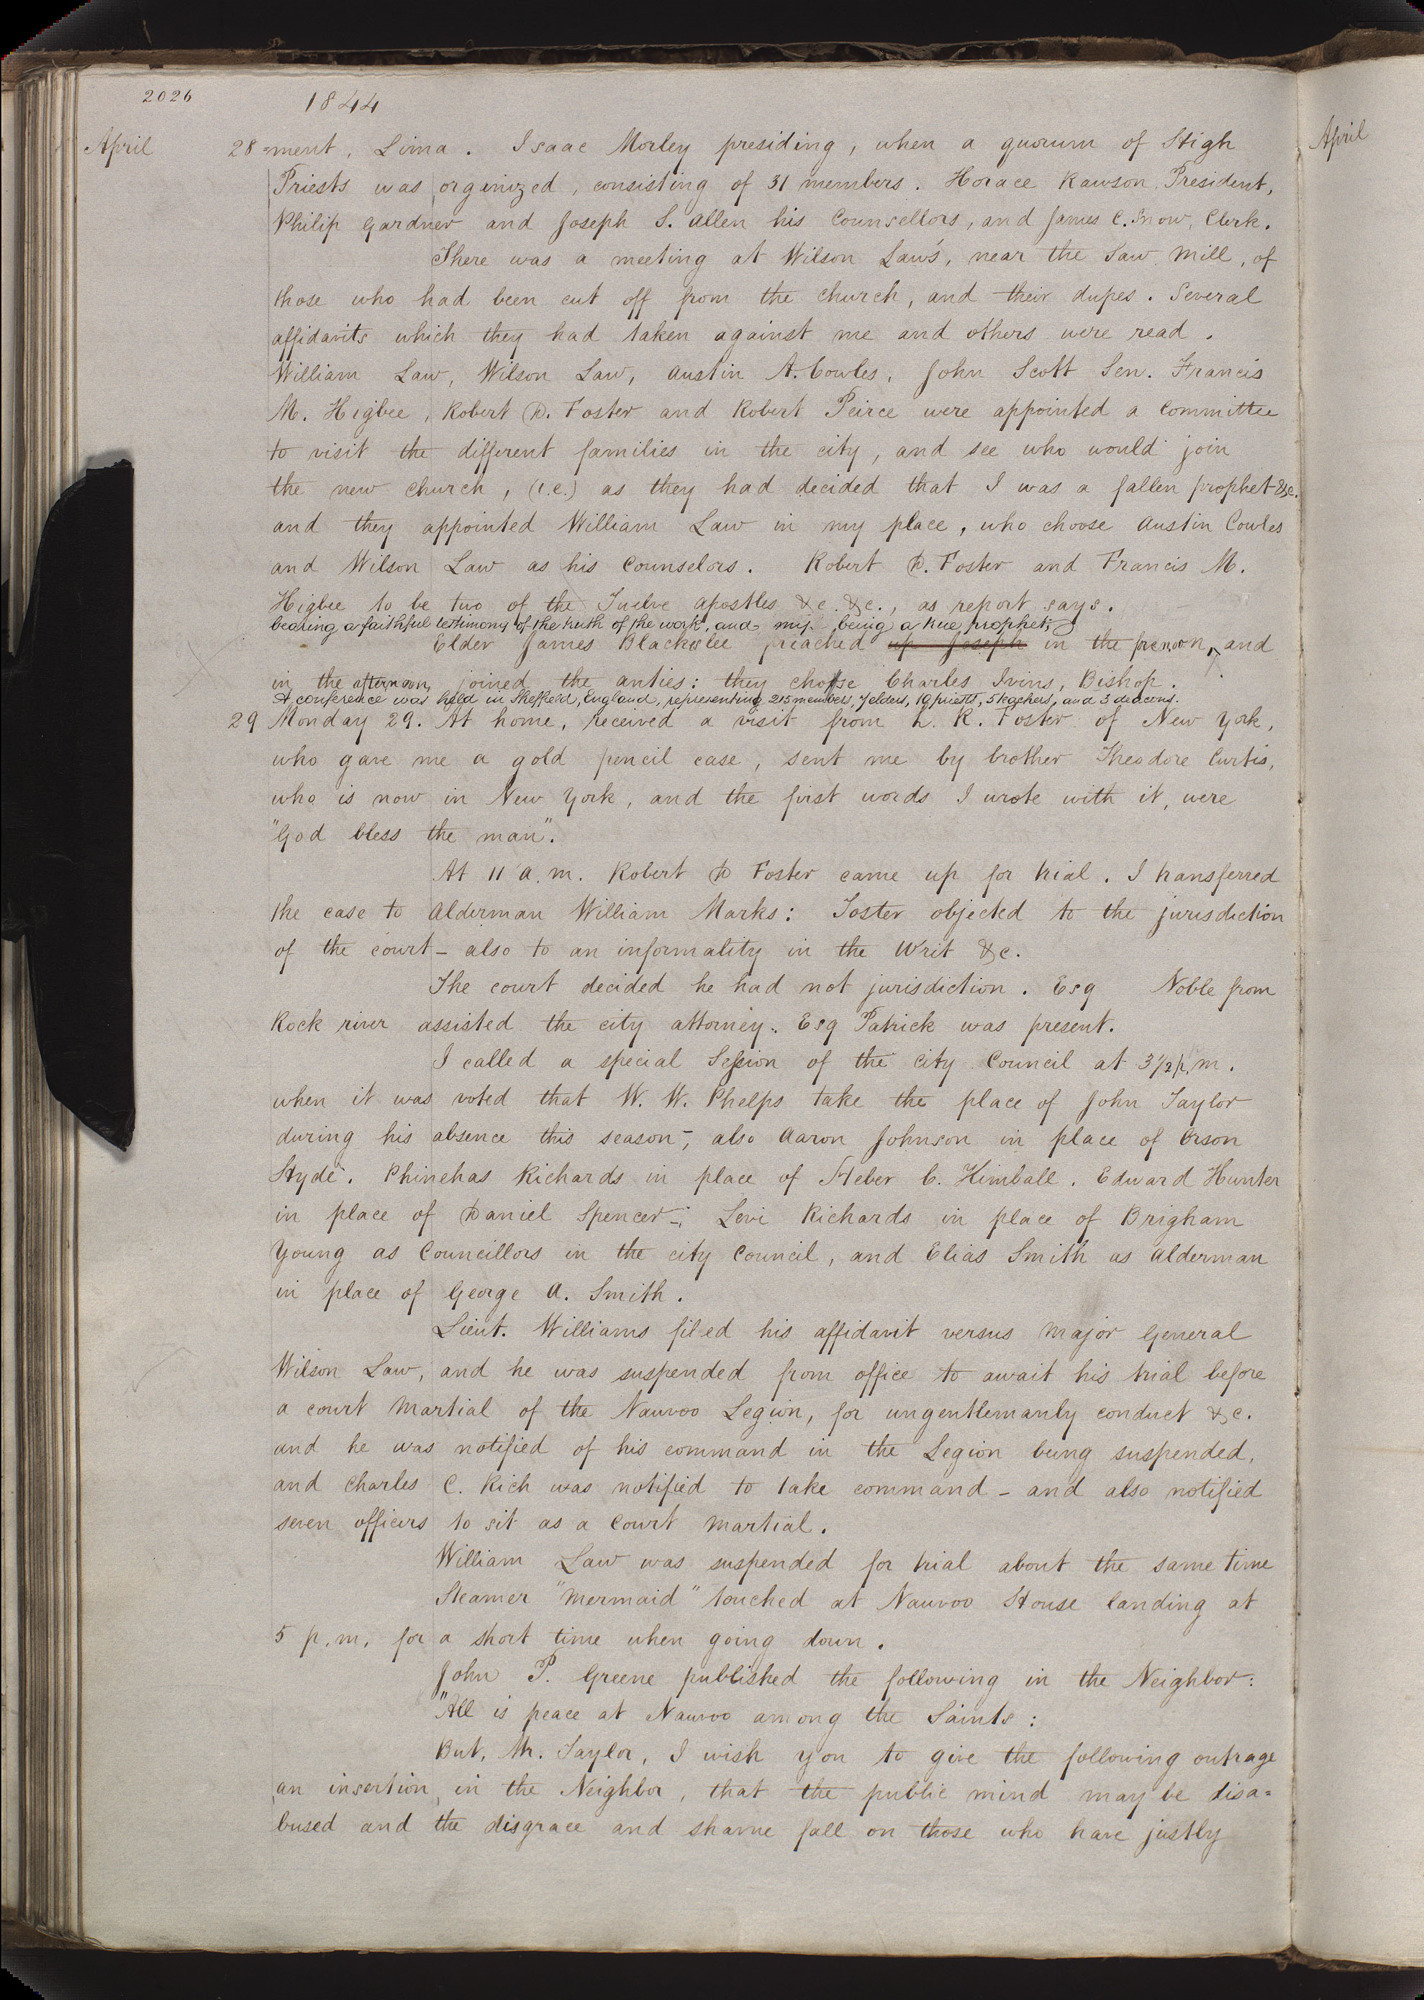 2026
1844
April
April
28 -ment, Lima. Isaac Morley presiding, when a quorum of High
Priests was orginized, consisting of 31 members. Horace Rawson President,
Philip Gardner and Joseph S. Allen his Counsellors, and James C. Snow, Clerk.
There was a meeting at Wilson Law's, near the Saw Mill, of
those who had been cut off from the church, and their dupes. Several
affidavits which they had taken against me and others were read.
William Law, Wilson Law, Austin A. Cowles, John Scott Sen. Francis
M. Higbee, Robert D. Foster and Robert Peirce were appointed a committee
to visit the different families in the city, and see who would join
the new church, (i.e.) as they had decided that I was a fallen prophet &c.
and they appointed William Law in my place, who choose Austin Cowles
and Wilson Law as his Counselors. Robert D. Foster and Francis M.
Higbee to be two of the Twelve apostles &c. &c., as report says.
bearing a faithful testimony of the truth of the work, and my being a true prophet;
Elder James Blakslee preached up Joseph in the forenoon, and
in the afternoon, joined the anties: they chose Charles Ivins, Bishop.
A conference was held in Sheffield, England, representing 215 members, 7 elders, 19 priests, 5 teachers, and 3 deacons.
29 Monday 29. At home, received a visit from L. R. Foster of New York,
who gave me a gold pencil case, sent me by brother Theodore Curtis,
who is now in New York, and the first words I wrote with it, were
"God bless the man".
At 11 a.m. Robert D Foster came up for trial. I transferred
the case to Alderman William Marks: Foster objected to the jurisdiction
of the court – also to an informality in the Writ &c.
The court decided he had not jurisdiction. Esq Noble from
Rock river assisted the city attorney. Esq Patrick was present.
I called a special Session of the city Council at 3 1/2 p.m.
when it was voted that W. W. Phelps take the place of John Taylor
during his absence this season –; also Aaron Johnson in place of Orson
Hyde. Phinehas Richards in place of Heber C. Kimball. Edward Hunter
in place of Daniel Spencer –; Levi Richards in place of Brigham
Young as Councillors in the city Council, and Elias Smith as Alderman
in place of George A. Smith.
Lieut. Williams filed his affidavit versus Major General
Wilson Law, and he was suspended from office to await his trial before
a court Martial of the Nauvoo Legion, for ungentlemanly conduct &c.
and he was notified of his command in the Legion being suspended,
and Charles C. Rich was notified to take command – and also notified
seven officers to sit as a Court Martial.
William Law was suspended for trial about the same time
Steamer "Mermaid" touched at Nauvoo House landing at
5 p.m. for a short time when going down.
John P. Greene published the following in the Neighbor:
"All is peace at Nauvoo among the Saints:
But, Mr. Taylor, I wish you to give the following outrage
an insertion in the Neighbor, that the public mind may be disa=
bused and the disgrace and shame fall on those who have justly